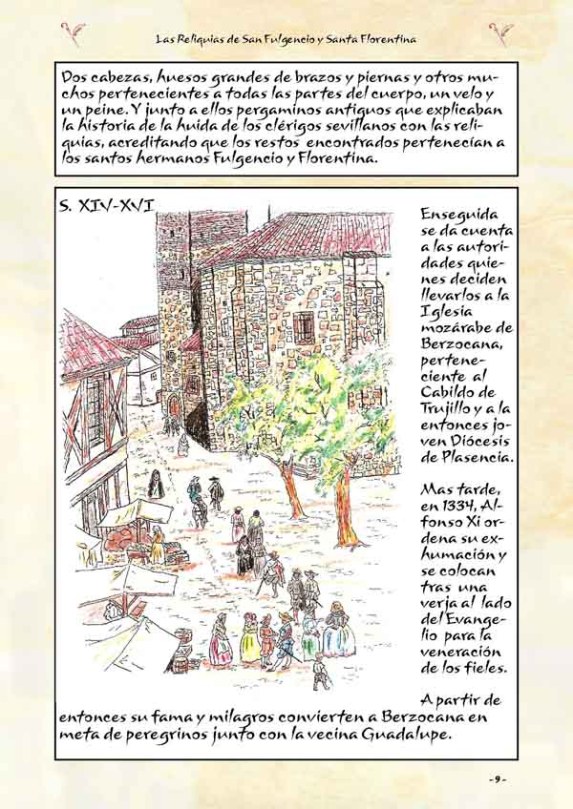 Las Reliquias de San Fulgencio y Santa Florentina
Dos cabezas, huesos grandes de brazos y piernas y otros mu-
chos pertenecientes a todas las partes del cuerpo, un velo y
un peine. Y junto a ellos pergaminos antiguos que explicaban
la historia de la huida de los clérigos sevillanos con las reli-
quias, acreditando que los restos encontrados pertenecían a
los santos hermanos Fulgencio y Florentina.
S. XIV-XVI
Enseguida
se da cuenta
a las autori-
dades quie-
nes deciden
llevarlos a la
Iglesia
mozárabe de
Berzocana,
pertene-
ciente al
Cabildo de
Trujillo y a la
entonces jo-
ven Diócesis
de Plasencia.
Mas tarde,
en 1334, Al-
fonso Xi or-
dena su ex-
humación y
se colocan
tras una
verja al lado
del Evange-
lio para la
veneración
de los fieles.
A partir de
entonces su fama y milagros convierten a Berzocana en
meta de peregrinos junto con la vecina Guadalupe.
-9-